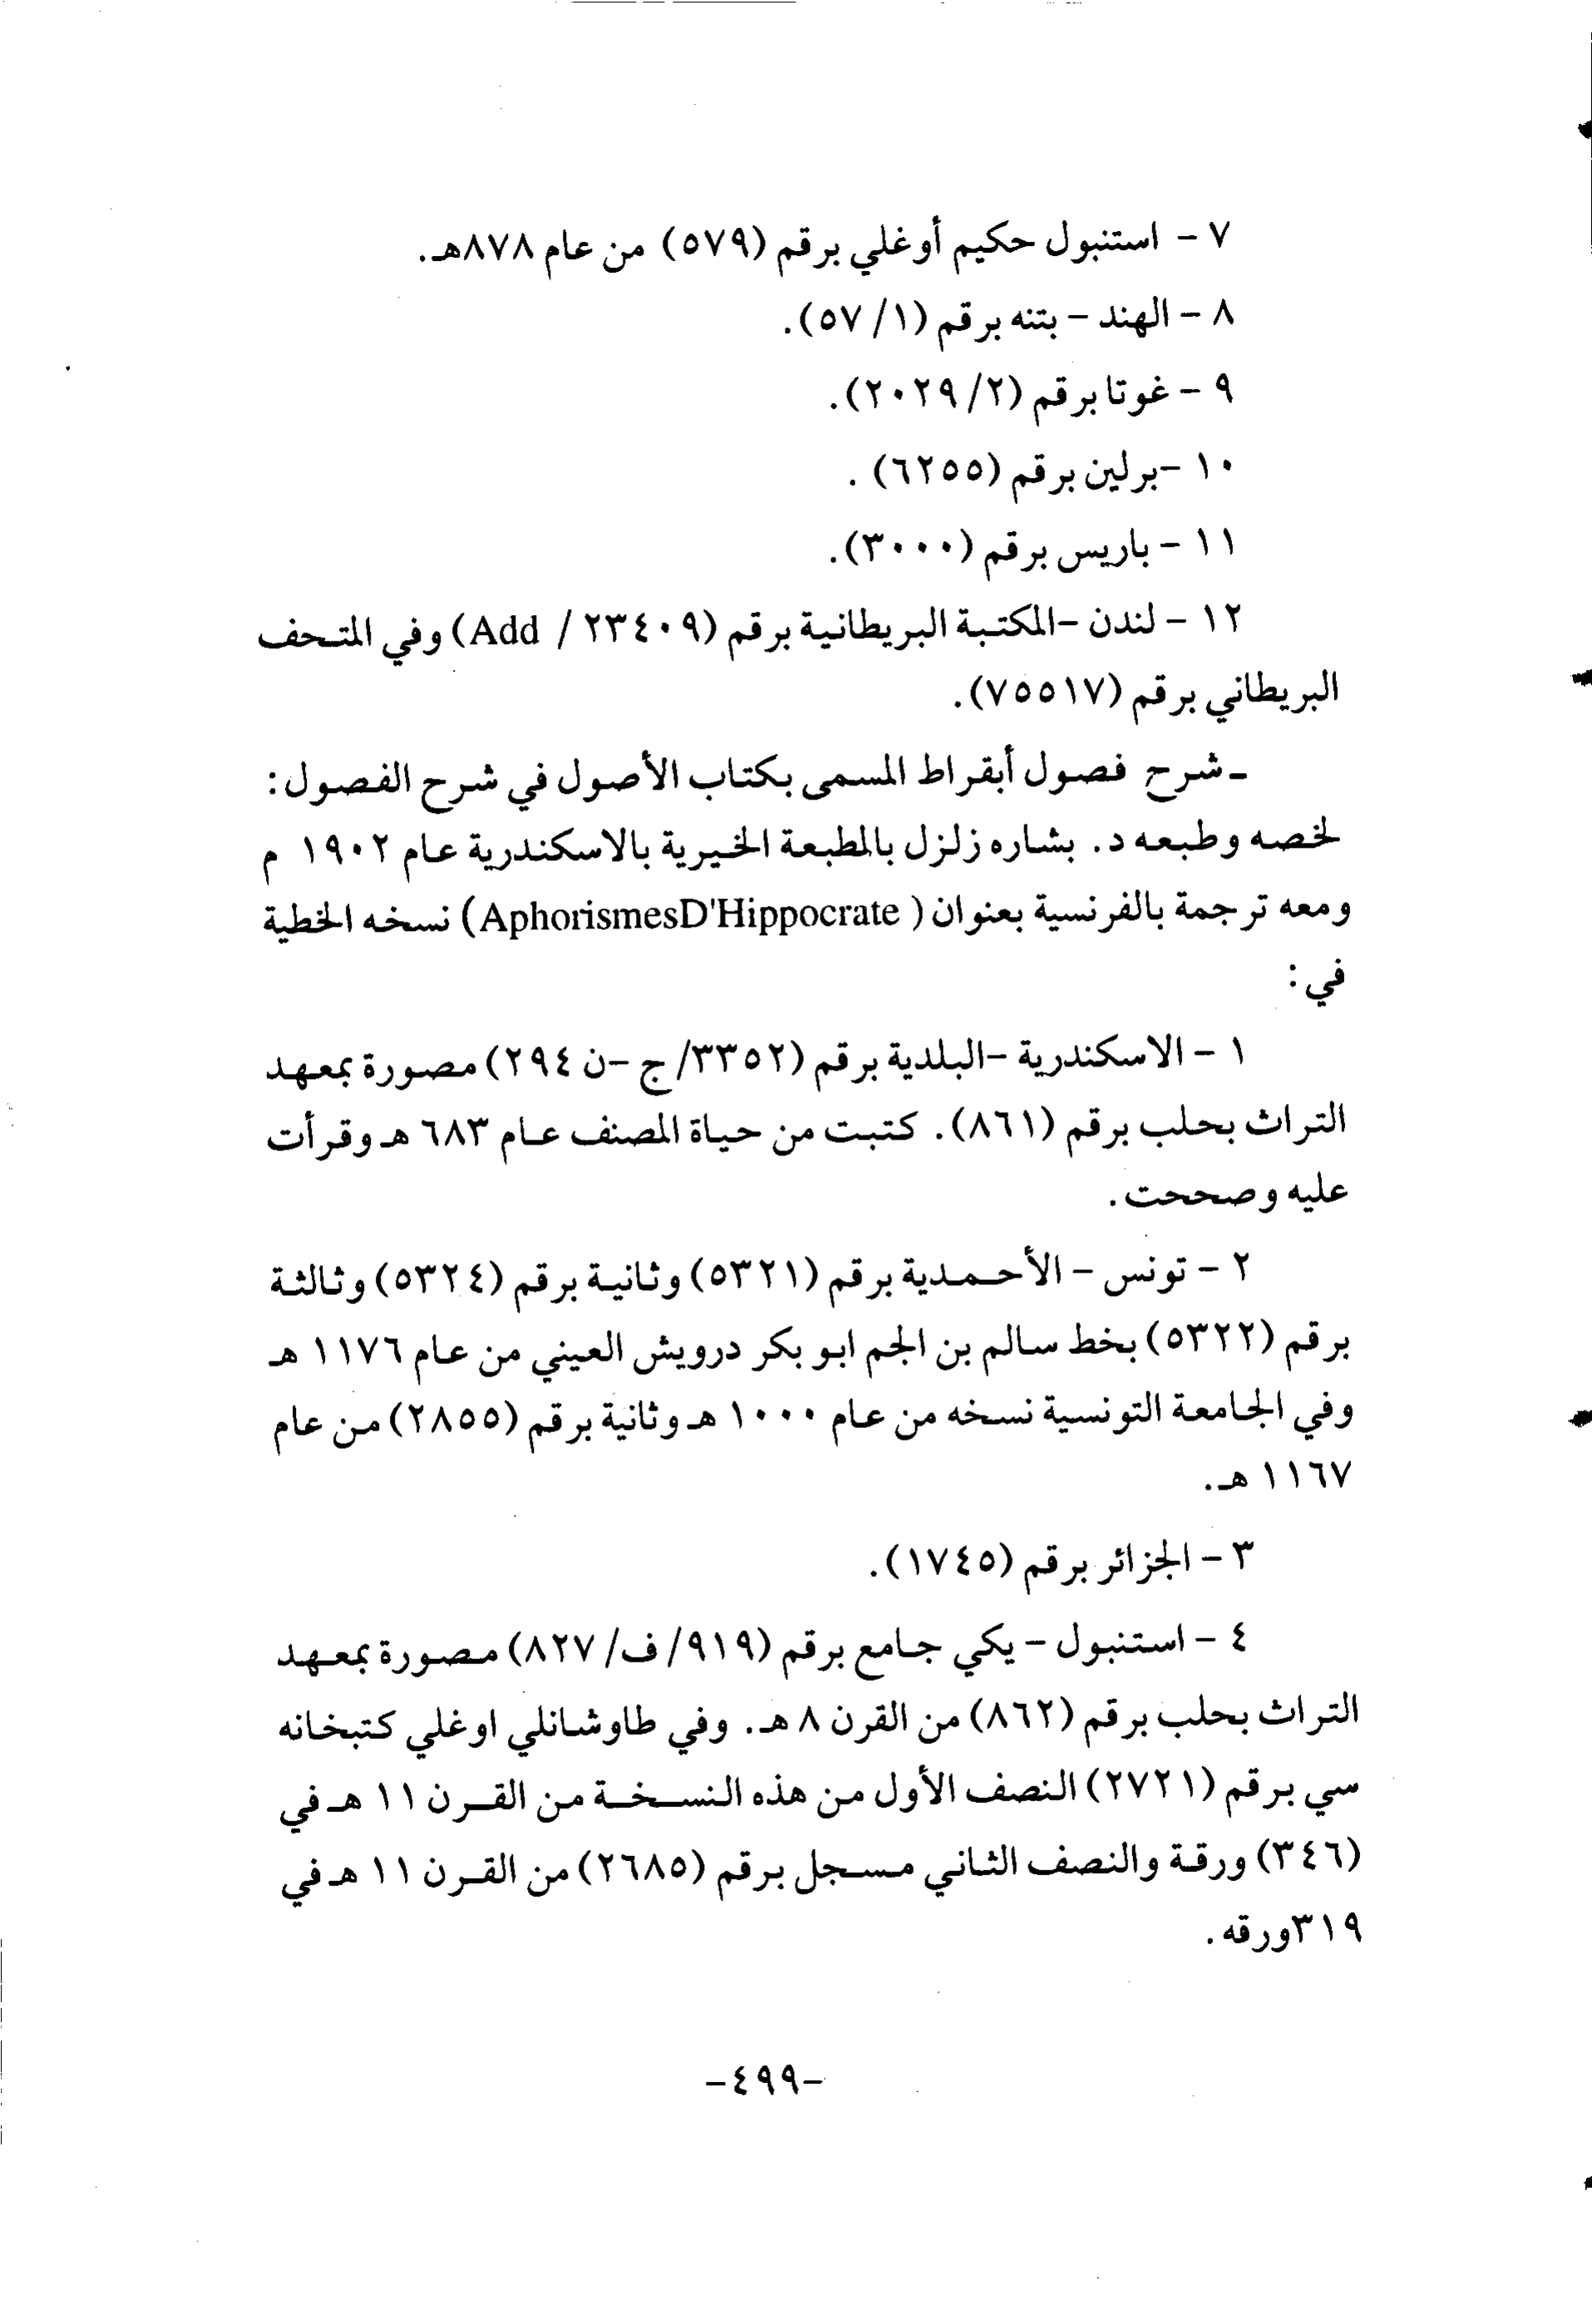 ٧ - استنبول حكيم أوغلي برقم (٥٧٩) من عام ٨٧٨هـ.
٨ - الهند - بتنه برقم (١/ ٥٧).
٩ - غوتا برقم (٢/ ٢٠٢٩).
١٠ -برلين برقم (٦٢٥٥) .
١١ - باريس برقم (٣٠٠٠).
١٢ - لندن -المكتبة البريطانية برقم (٢٣٤٠٩ / Add) وفي المتحف
البريطاني برقم (٧٥٥١٧).
ـ شرح فصول أبقراط المسمى بكتاب الأصول في شرح الفصول :
لخصه وطبعه د. بشاره زلزل بالمطبعة الخيرية بالاسكندرية عام ١٩٠٢ م
ومعه ترجمة بالفرنسية بعنوان ( AphorismesD'Hippocrate) نسخه الخطية
في :
١ - الاسكندرية -البلدية برقم (٣٣٥٢/ ج -ن ٢٩٤) مصورة بمعهد
التراث بحلب برقم (٨٦١). كتبت من حياة المصنف عام ٦٨٣ هـ وقرأت
عليه وصححت.
٢ - تونس - الأحمدية برقم (٥٣٢١) وثانية برقم (٥٣٢٤) وثالثة
برقم (٥٣٢٢) بخط سالم بن الجم ابو بكر درويش العيني من عام ١١٧٦ هـ
وفي الجامعة التونسية نسخه من عام ١٠٠٠ هـ وثانية برقم (٢٨٥٥) من عام
١١٦٧ هـ.
٣ - الجزائر برقم (١٧٤٥).
٤ - استنبول - يكي جامع برقم (٩١٩/ ف/ ٨٢٧) مصورة بمعهد
التراث بحلب برقم (٨٦٢) من القرن ٨ هـ. وفي طاوشانلي اوغلي كتبخانه
سي برقم (٢٧٢١) النصف الأول من هذه النسخة من القرن ١١ هـ في
(٣٤٦) ورقة والنصف الثاني مسجل برقم (٢٦٨٥) من القرن ١١ هـ في
٣١٩ورقه.
-٤٩٩-